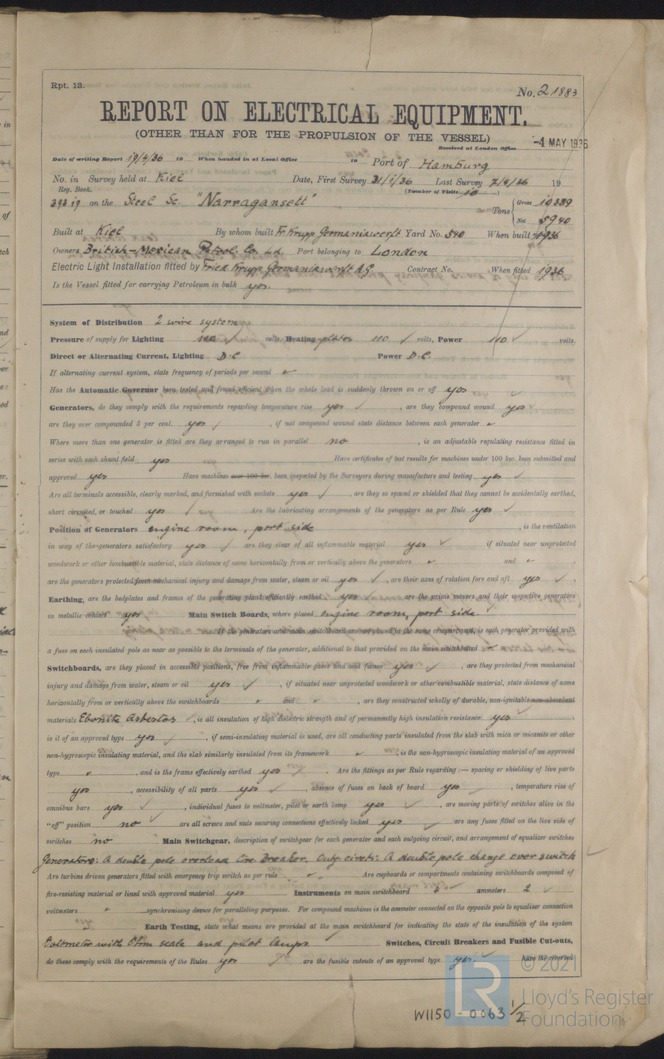 Rpt. 13.
No. 21883
REPORT ON ELECTRICAL EQUIPMENT.
(OTHER THAN FOR THE PROPULSION OF THE VESSEL)
Received at London Office
-4 MAY 1936
Date of writing Report 19/4/36 When handed in at Local Office Port of Hamburg
No. in Survey held at Kiel Date, First Survey 31/1/36 Last Survey 7/3/36 19
Reg. Book. (Number of Visits 10)
39319 on the Steel Sc "Narragansett" Tons Gross 10389
Net 5940
Built at Kiel By whom built F. Krupp Germaniawerft Yard No. 540 When built 1936
Owners British-Mexican Petrol. Co. Ld. Port belonging to London
Electric Light Installation fitted by Fried. Krupp Germaniawerft A.G. Contract No. When fitted 1936
Is the Vessel fitted for carrying Petroleum in bulk yes.
System of Distribution 2 wire system
Pressure of supply for Lighting 110 volts, Heating plates 110 volts, Power 110 volts.
Direct or Alternating Current, Lighting D.C Power D.C.
If alternating current, state frequency of periods per second
Has the Automatic Governor been tested and found efficient when the whole load is suddenly thrown on or off yes
Generators, do they comply with the requirements regarding temperature rise yes, are they compound wound yes
are they over compounded 5 per cent. yes, if not compound wound state distance between each generator
Where more than one generator is fitted are they arranged to run in parallel no, is an adjustable regulating resistance fitted in
series with each shunt field yes Have certificates of test results for machines under 100 kw. been submitted and
approved yes Have machines over 100 kw. been inspected by the Surveyors during manufacture and testing yes
Are all terminals accessible, clearly marked, and furnished with sockets yes, are they so spaced or shielded that they cannot be accidentally earthed,
short circuited, or touched yes Are the lubricating arrangements of the generators as per Rule yes
Position of Generators engine room, port side, is the ventilation
in way of the generators satisfactory yes are they clear of all inflammable material yes if situated near unprotected
woodwork or other combustible material, state distance of same horizontally from or vertically above the generators and
are the generators protected from mechanical injury and damage from water, steam or oil yes, are their axes of rotation fore and aft yes
Earthing, are the bedplates and frames of the generating plant efficiently earthed yes are the prime movers and their respective generators
in metallic contact yes Main Switch Boards, where placed engine room, port side
a fuse on each insulated pole as near as possible to the terminals of the generator, additional to that provided on the main switchboard
Switchboards, are they placed in accessible positions, free from inflammable gases and acid fumes yes, are they protected from mechanical
injury and damage from water, steam or oil yes, if situated near unprotected woodwork or other combustible material, state distance of same
horizontally from or vertically above the switchboards and, are they constructed wholly of durable, non-ignitable non-absorbent
materials Ebonite Asbestos, is all insulation of high dielectric strength and of permanently high insulation resistance yes
is it of an approved type yes, if semi-insulating material is used, are all conducting parts insulated from the slab with mica or micanite or other
non-hygroscopic insulating material, and the slab similarly insulated from its framework, is the non-hygroscopic insulating material of an approved
type, and is the frame effectively earthed yes Are the fittings as per Rule regarding:— spacing or shielding of live parts
yes, accessibility of all parts yes, absence of fuses on back of board yes, temperature rise of
omnibus bars yes, individual fuses to voltmeter, pilot or earth lamp yes, are moving parts of switches alive in the
"off" position no are all screws and nuts securing connections effectively locked yes are any fuses fitted on the live side of
switches no Main Switchgear, description of switchgear for each generator and each outgoing circuit, and arrangement of equalizer switches
Generators: A double pole overload Line Breaker. Outg. circuits: A double pole change over switch
Are turbine driven generators fitted with emergency trip switch as per rule Are cupboards or compartments containing switchboards composed of
fire-resisting material or lined with approved material yes Instruments on main switchboard ammeters 2
voltmeters synchronising device for paralleling purposes. For compound machines is the ammeter connected on the opposite pole to equaliser connection
Earth Testing, state what means are provided at the main switchboard for indicating the state of the insulation of the system
Voltmeter with Ohm scale and pilot lamps Switches, Circuit Breakers and Fusible Cut-outs,
do these comply with the requirements of the Rules yes are the fusible cutouts of an approved type yes
© 2021
Lloyd's Register
Foundation
W1150-0063 1/2